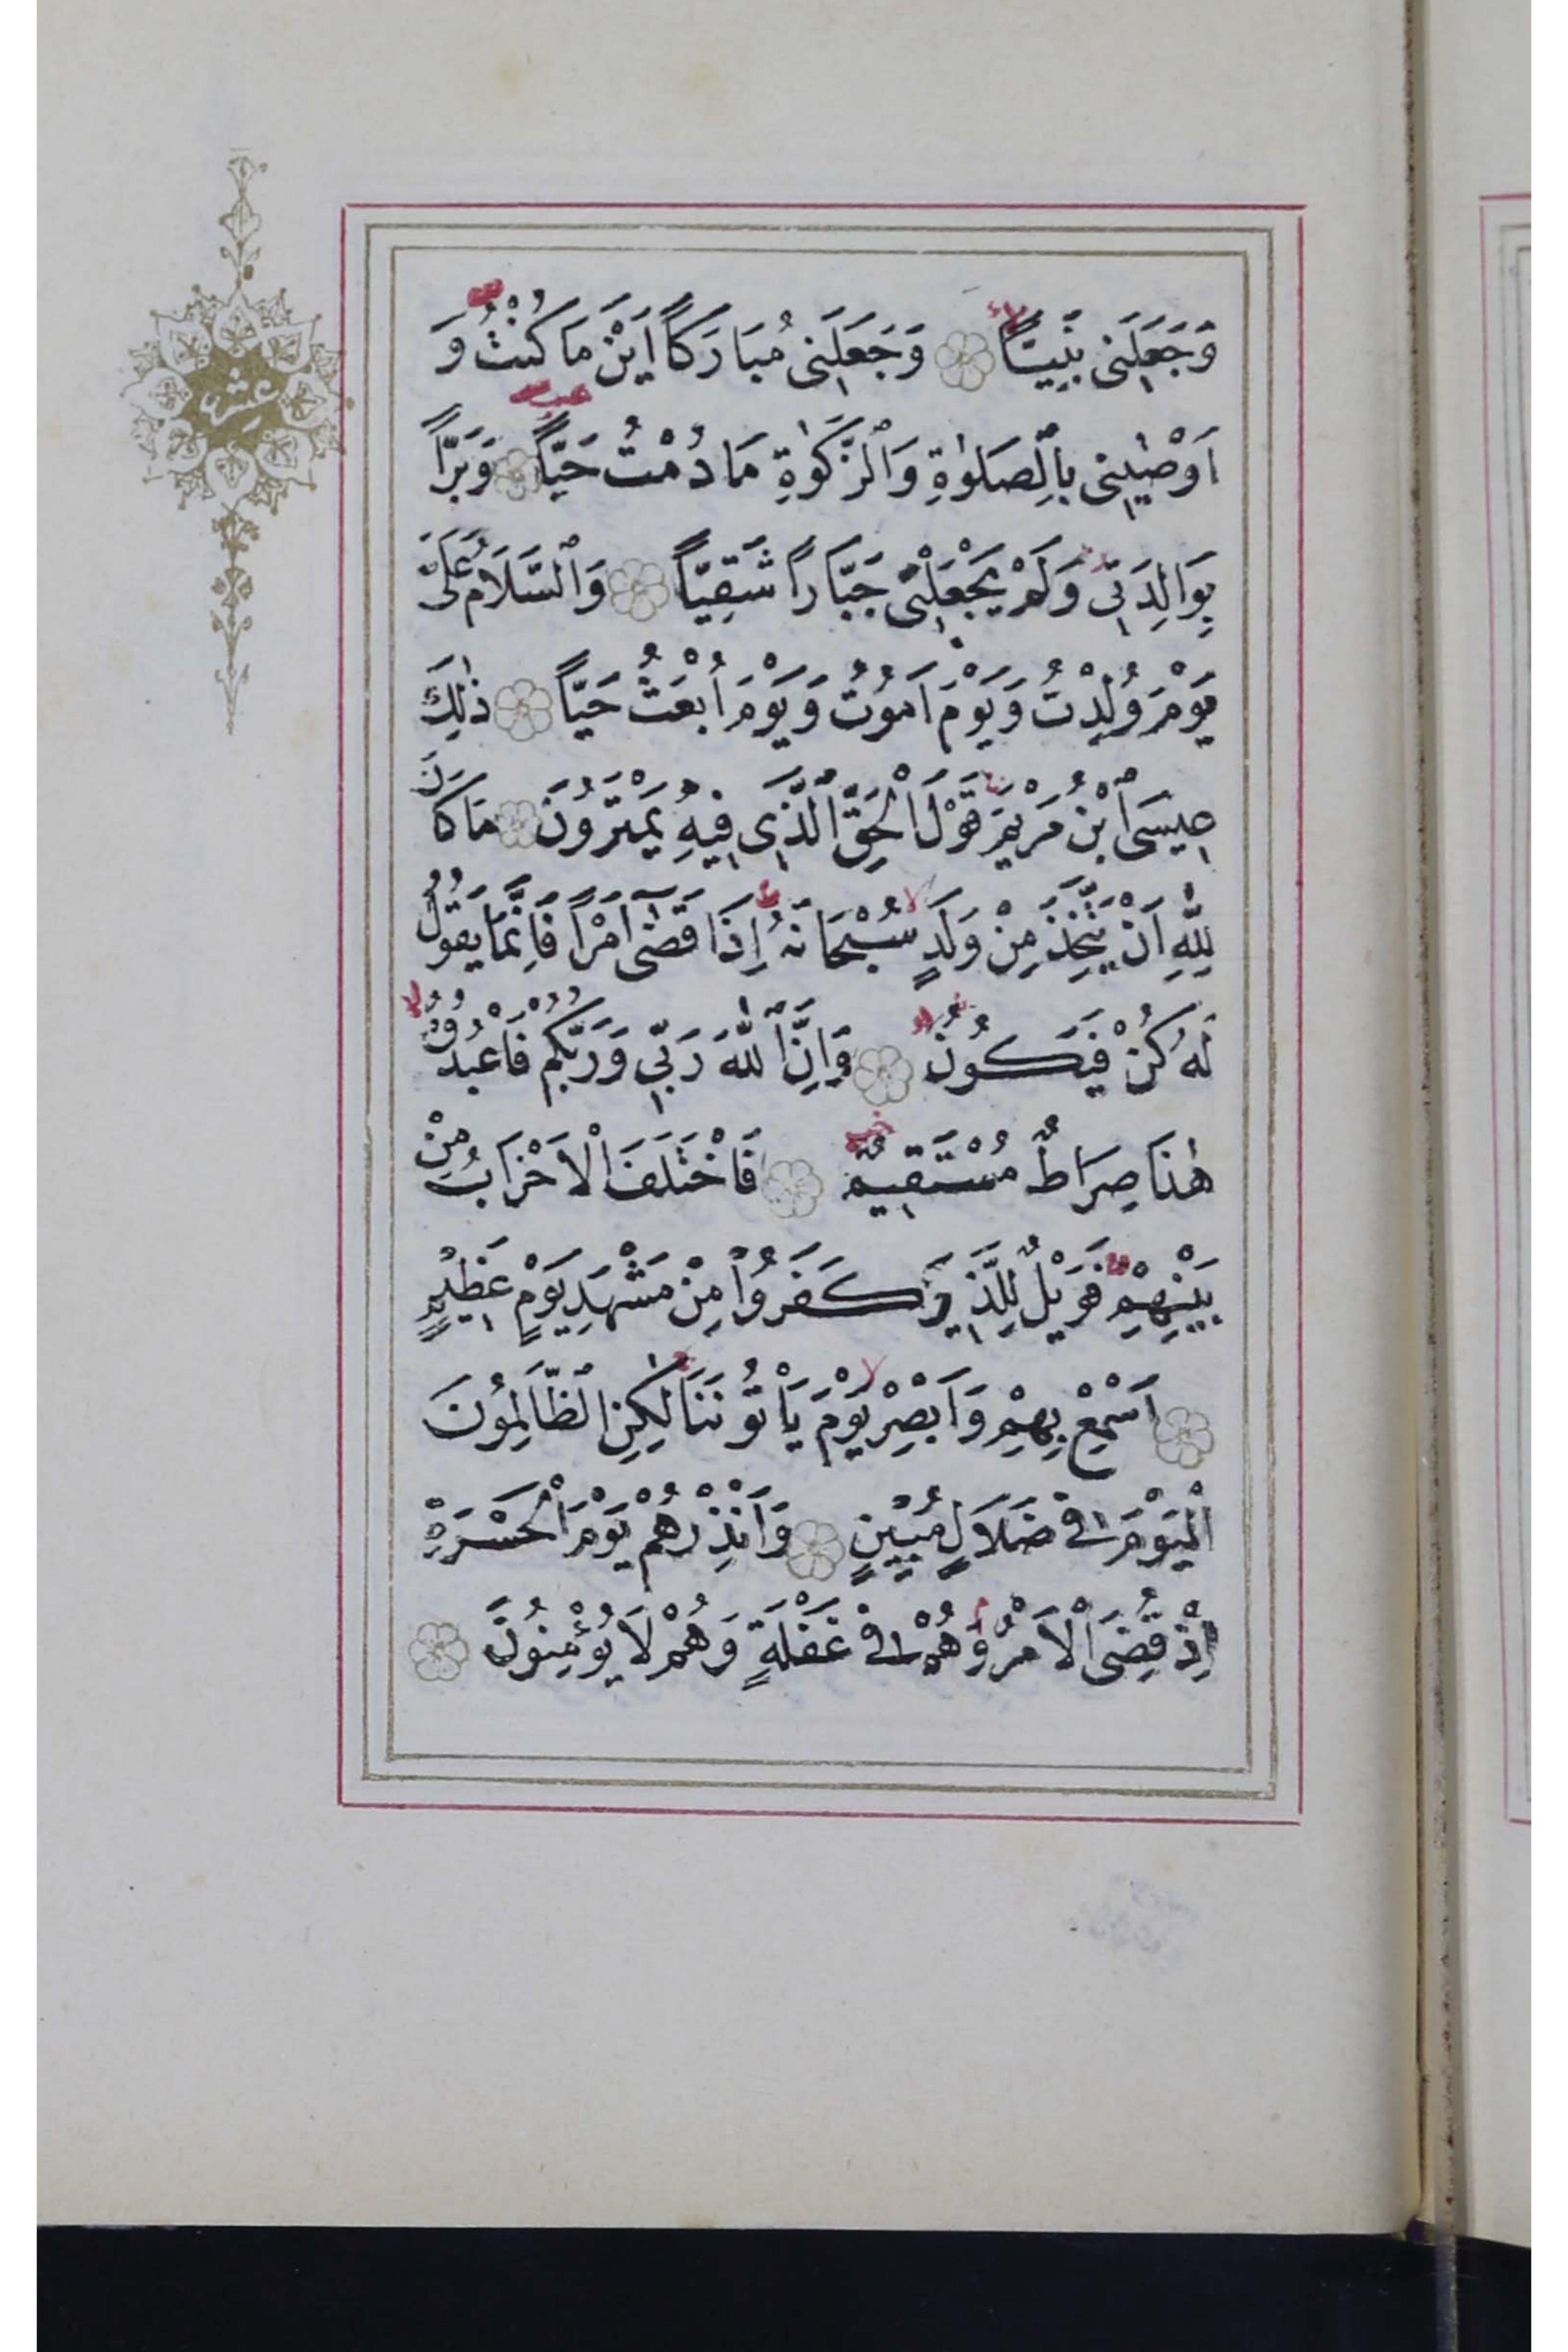 وَجَعَلَنِى نَبِيًّا وَجَعَلَنِى مُبَارَكًا اَيْنَ مَا كُنْتُ وَ
اَوْصٰينِى بِالصَّلٰوةِ وَالزَّكٰوةِ مَا دُمْتُ حَيًّا وَبَرًّا
بِوَالِدَتِى وَلَمْ يَجْعَلْنِى جَبَّارًا شَقِيًّا وَالسَّلَامُ عَلَىَّ
يَوْمَ وُلِدْتُ وَيَوْمَ اَمُوتُ وَيَوْمَ اُبْعَثُ حَيًّا ذٰلِكَ
عِيسَى ابْنُ مَرْيَمَ قَوْلَ الْحَقِّ الَّذِى فِيهِ يَمْتَرُونَ مَا كَانَ
لِلّٰهِ اَنْ يَتَّخِذَ مِنْ وَلَدٍ سُبْحَانَهُ اِذَا قَضٰٓى اَمْرًا فَاِنَّمَا يَقُولُ
لَهُ كُنْ فَيَكُونُ وَاِنَّ اللّٰهَ رَبِّى وَرَبُّكُمْ فَاعْبُدُوهُ
هٰذَا صِرَاطٌ مُسْتَقِيمٌ فَاخْتَلَفَ الْاَحْزَابُ مِنْ
بَيْنِهِمْ فَوَيْلٌ لِلَّذِينَ كَفَرُوا مِنْ مَشْهَدِ يَوْمٍ عَظِيمٍ
اَسْمِعْ بِهِمْ وَاَبْصِرْ يَوْمَ يَاْتُونَنَا لٰكِنِ الظَّالِمُونَ
الْيَوْمَ فِى ضَلَالٍ مُبِينٍ وَاَنْذِرْهُمْ يَوْمَ الْحَسْرَةِ
اِذْ قُضِىَ الْاَمْرُ وَهُمْ فِى غَفْلَةٍ وَهُمْ لَا يُؤْمِنُونَ
عشر